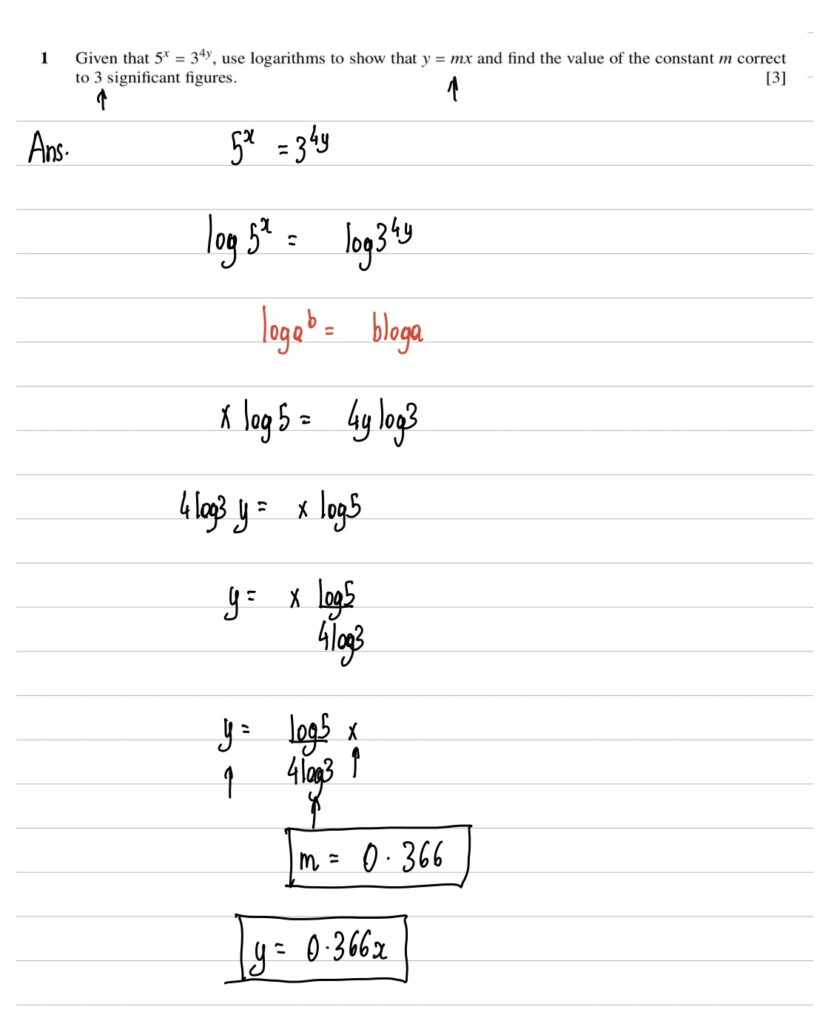 1 Given that 5ˣ = 3⁴ʸ, use logarithms to show that y = mx and find the value of the constant m correct
to 3 significant figures. [3]
Ans. 5ˣ = 3⁴ʸ
log 5ˣ = log3⁴ʸ
logaᵇ = bloga
x log5 = 4y log3
4log3 y = x log5
y = x log5
4log3
y = log5 x
4log3
m = 0.366
y = 0.366x